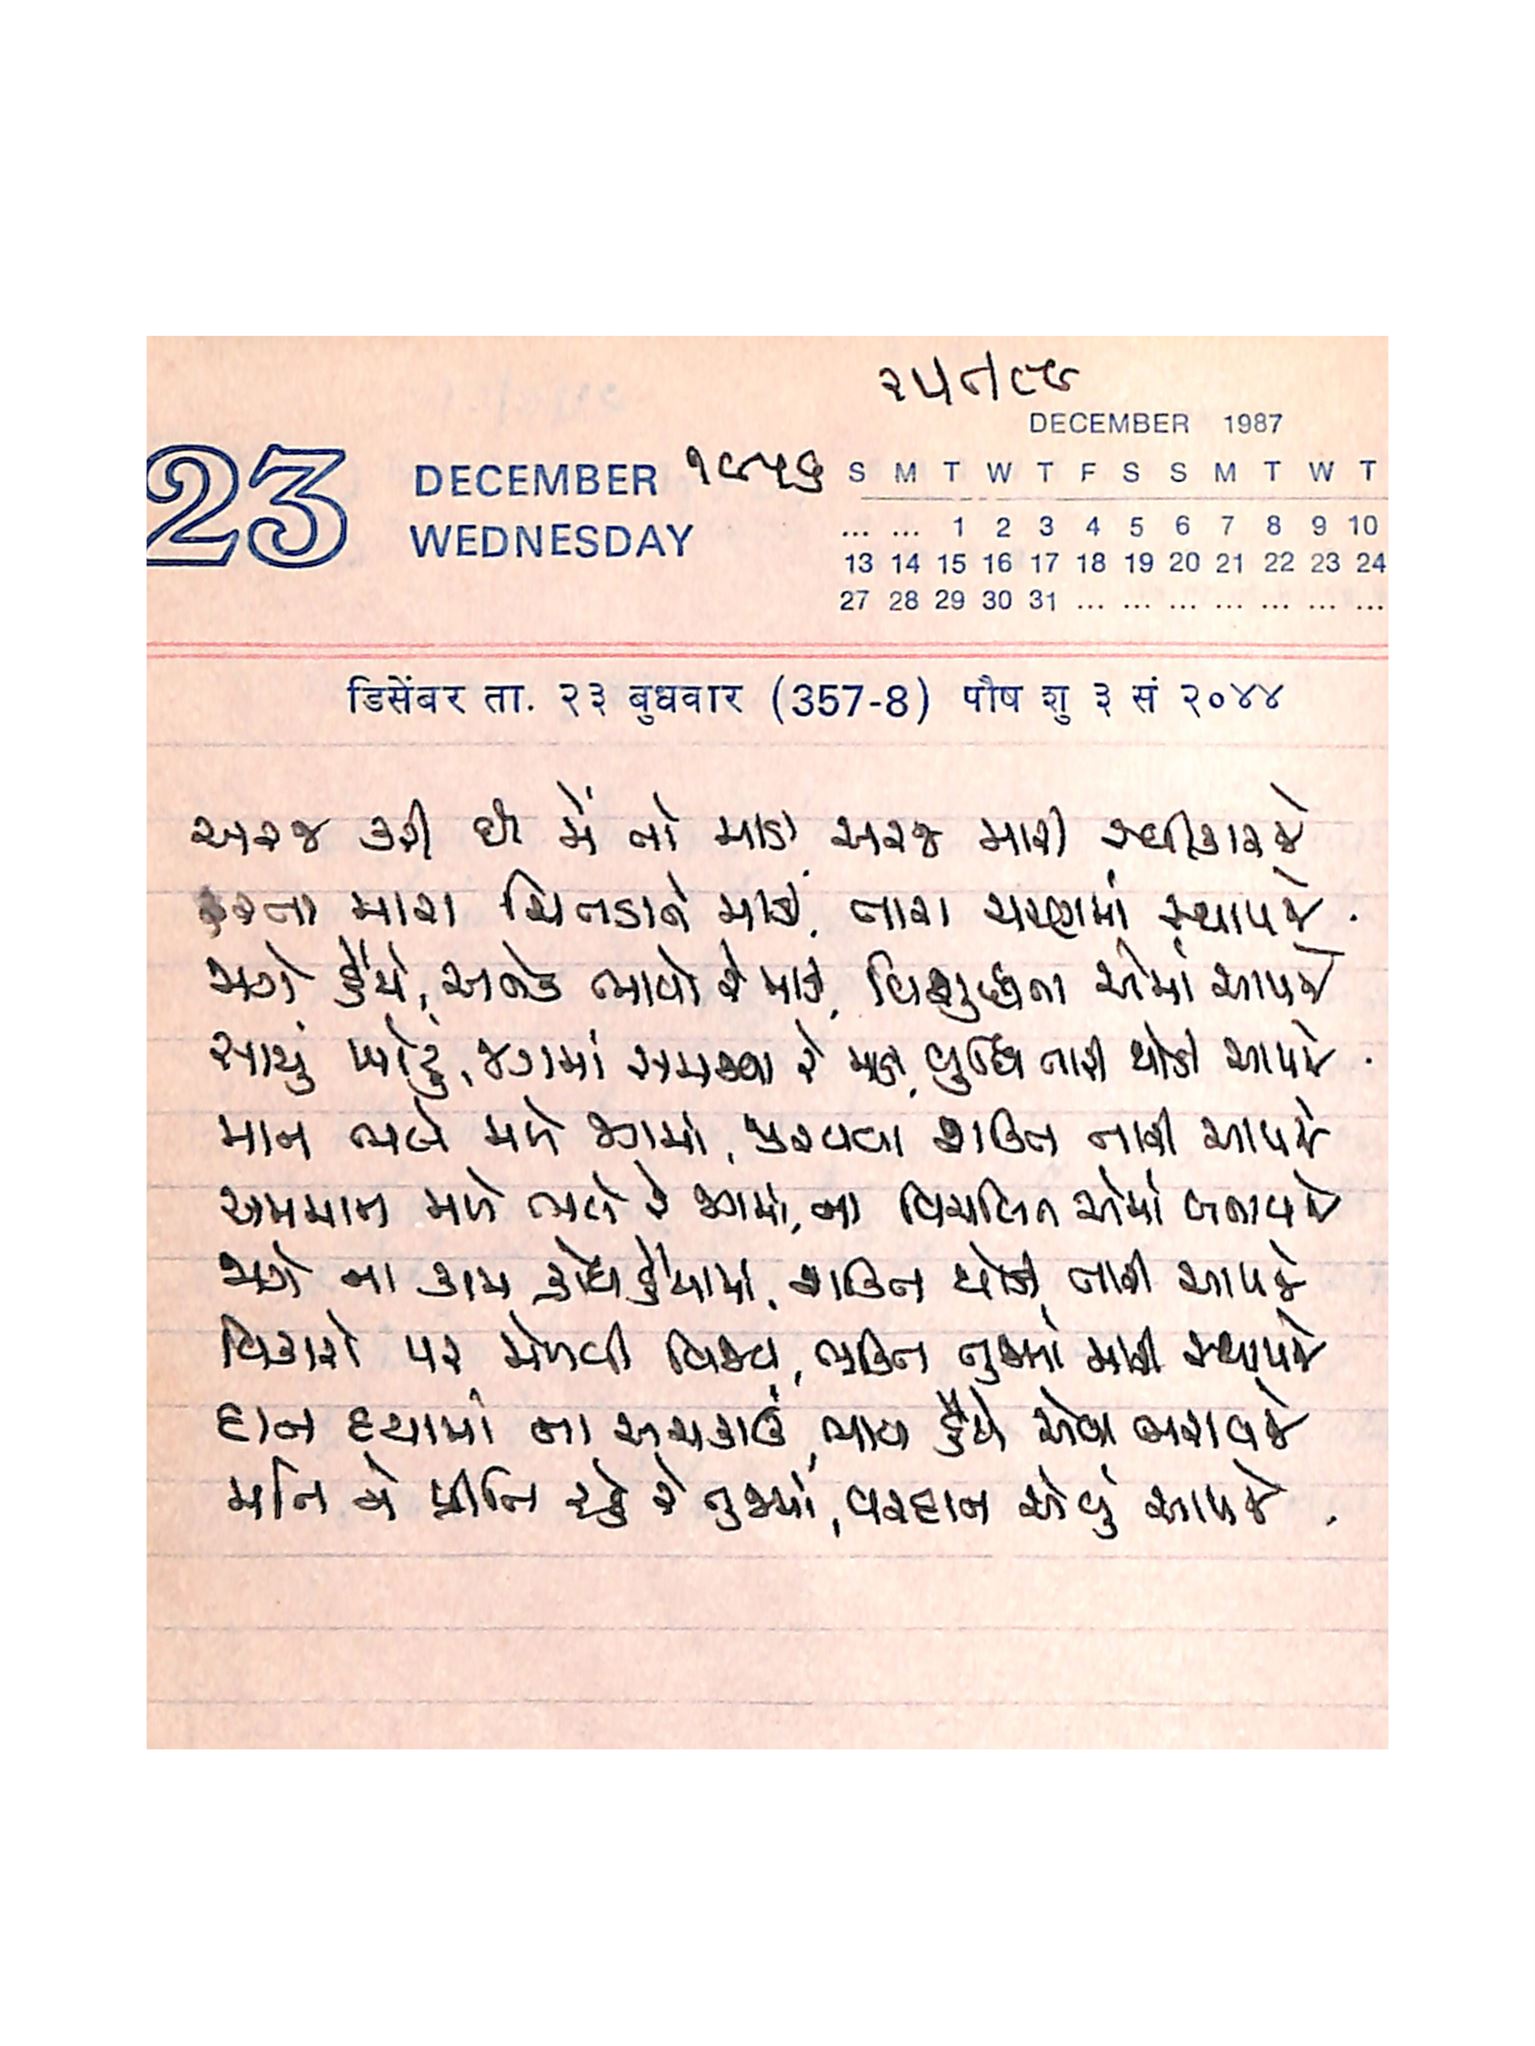 ૨૫/૧/૮૯
DECEMBER 1987
23 DECEMBER ૧૬૫૬ S M T W T F S S M T W T
WEDNESDAY ... ... 1 2 3 4 5 6 7 8 9 10
13 14 15 16 17 18 19 20 21 22 23 24
27 28 29 30 31 ... ... ... ... ... ... ...
डिसेंबर ता. २३ बुधवार (357-8) पौष शु ३ सं २०४४
અરજ કરી છે મેં તો માડી અરજ મારી સ્વીકારજે
ફરતા મારા ચિત્તડાને માડી, તારા ચરણમાં સ્થાપજે.
જાગે હૈયે, અનેક ભાવો રે માડી, વિશુદ્ધતા એમાં આપજે
સાચું ખોટું, જગમાં સમજવા રે માડી, બુદ્ધિ તારી થોડી આપજે.
માન ભલે મળે જગમાં, જીરવવા શક્તિ તારી આપજે
અપમાન મળે ભલે રે જગમાં, ના વિચલિત એમાં બનાવજે
જાગે ના કામ ક્રોધ હૈયામાં, શક્તિ થોડી તારી આપજે
વિકારો પર મેળવી વિજય, ભક્તિ તુજમાં મારી સ્થાપજે
દાન દયામાં ના અચકાઉં, ભાવ હૈયે એવા ભરાવજે
મતિ ને પ્રીતિ રહે રે તુજમાં, વરદાન એવું આપજે.